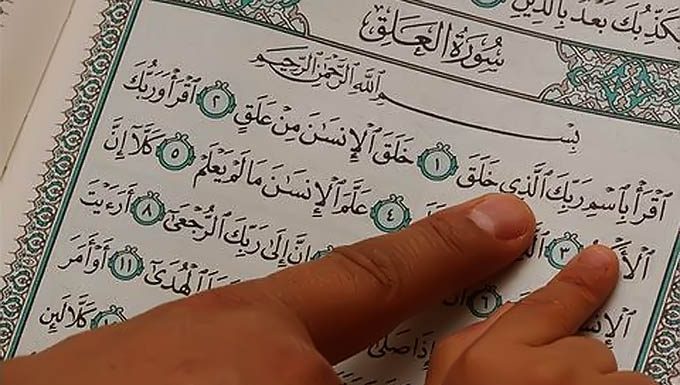 يُكَذِّبُكَ بَعْدُ بِٱلدِّينِ
سُورَةُ العَلَق
بِسْمِ ٱللَّهِ ٱلرَّحْمَٰنِ ٱلرَّحِيمِ
ٱقْرَأْ بِٱسْمِ رَبِّكَ ٱلَّذِى خَلَقَ ١ خَلَقَ ٱلْإِنسَٰنَ مِنْ عَلَقٍ ٢ ٱقْرَأْ وَرَبُّكَ
٣ ٤ عَلَّمَ ٱلْإِنسَٰنَ مَا لَمْ يَعْلَمْ ٥ كَلَّآ إِنَّ
٦ إِنَّ إِلَىٰ رَبِّكَ ٱلرُّجْعَىٰٓ ٨ أَرَءَيْتَ
إِذَا صَلَّىٰٓ ٱلْهُدَىٰٓ ١١ أَوْ أَمَرَ
كَلَّا لَئِن